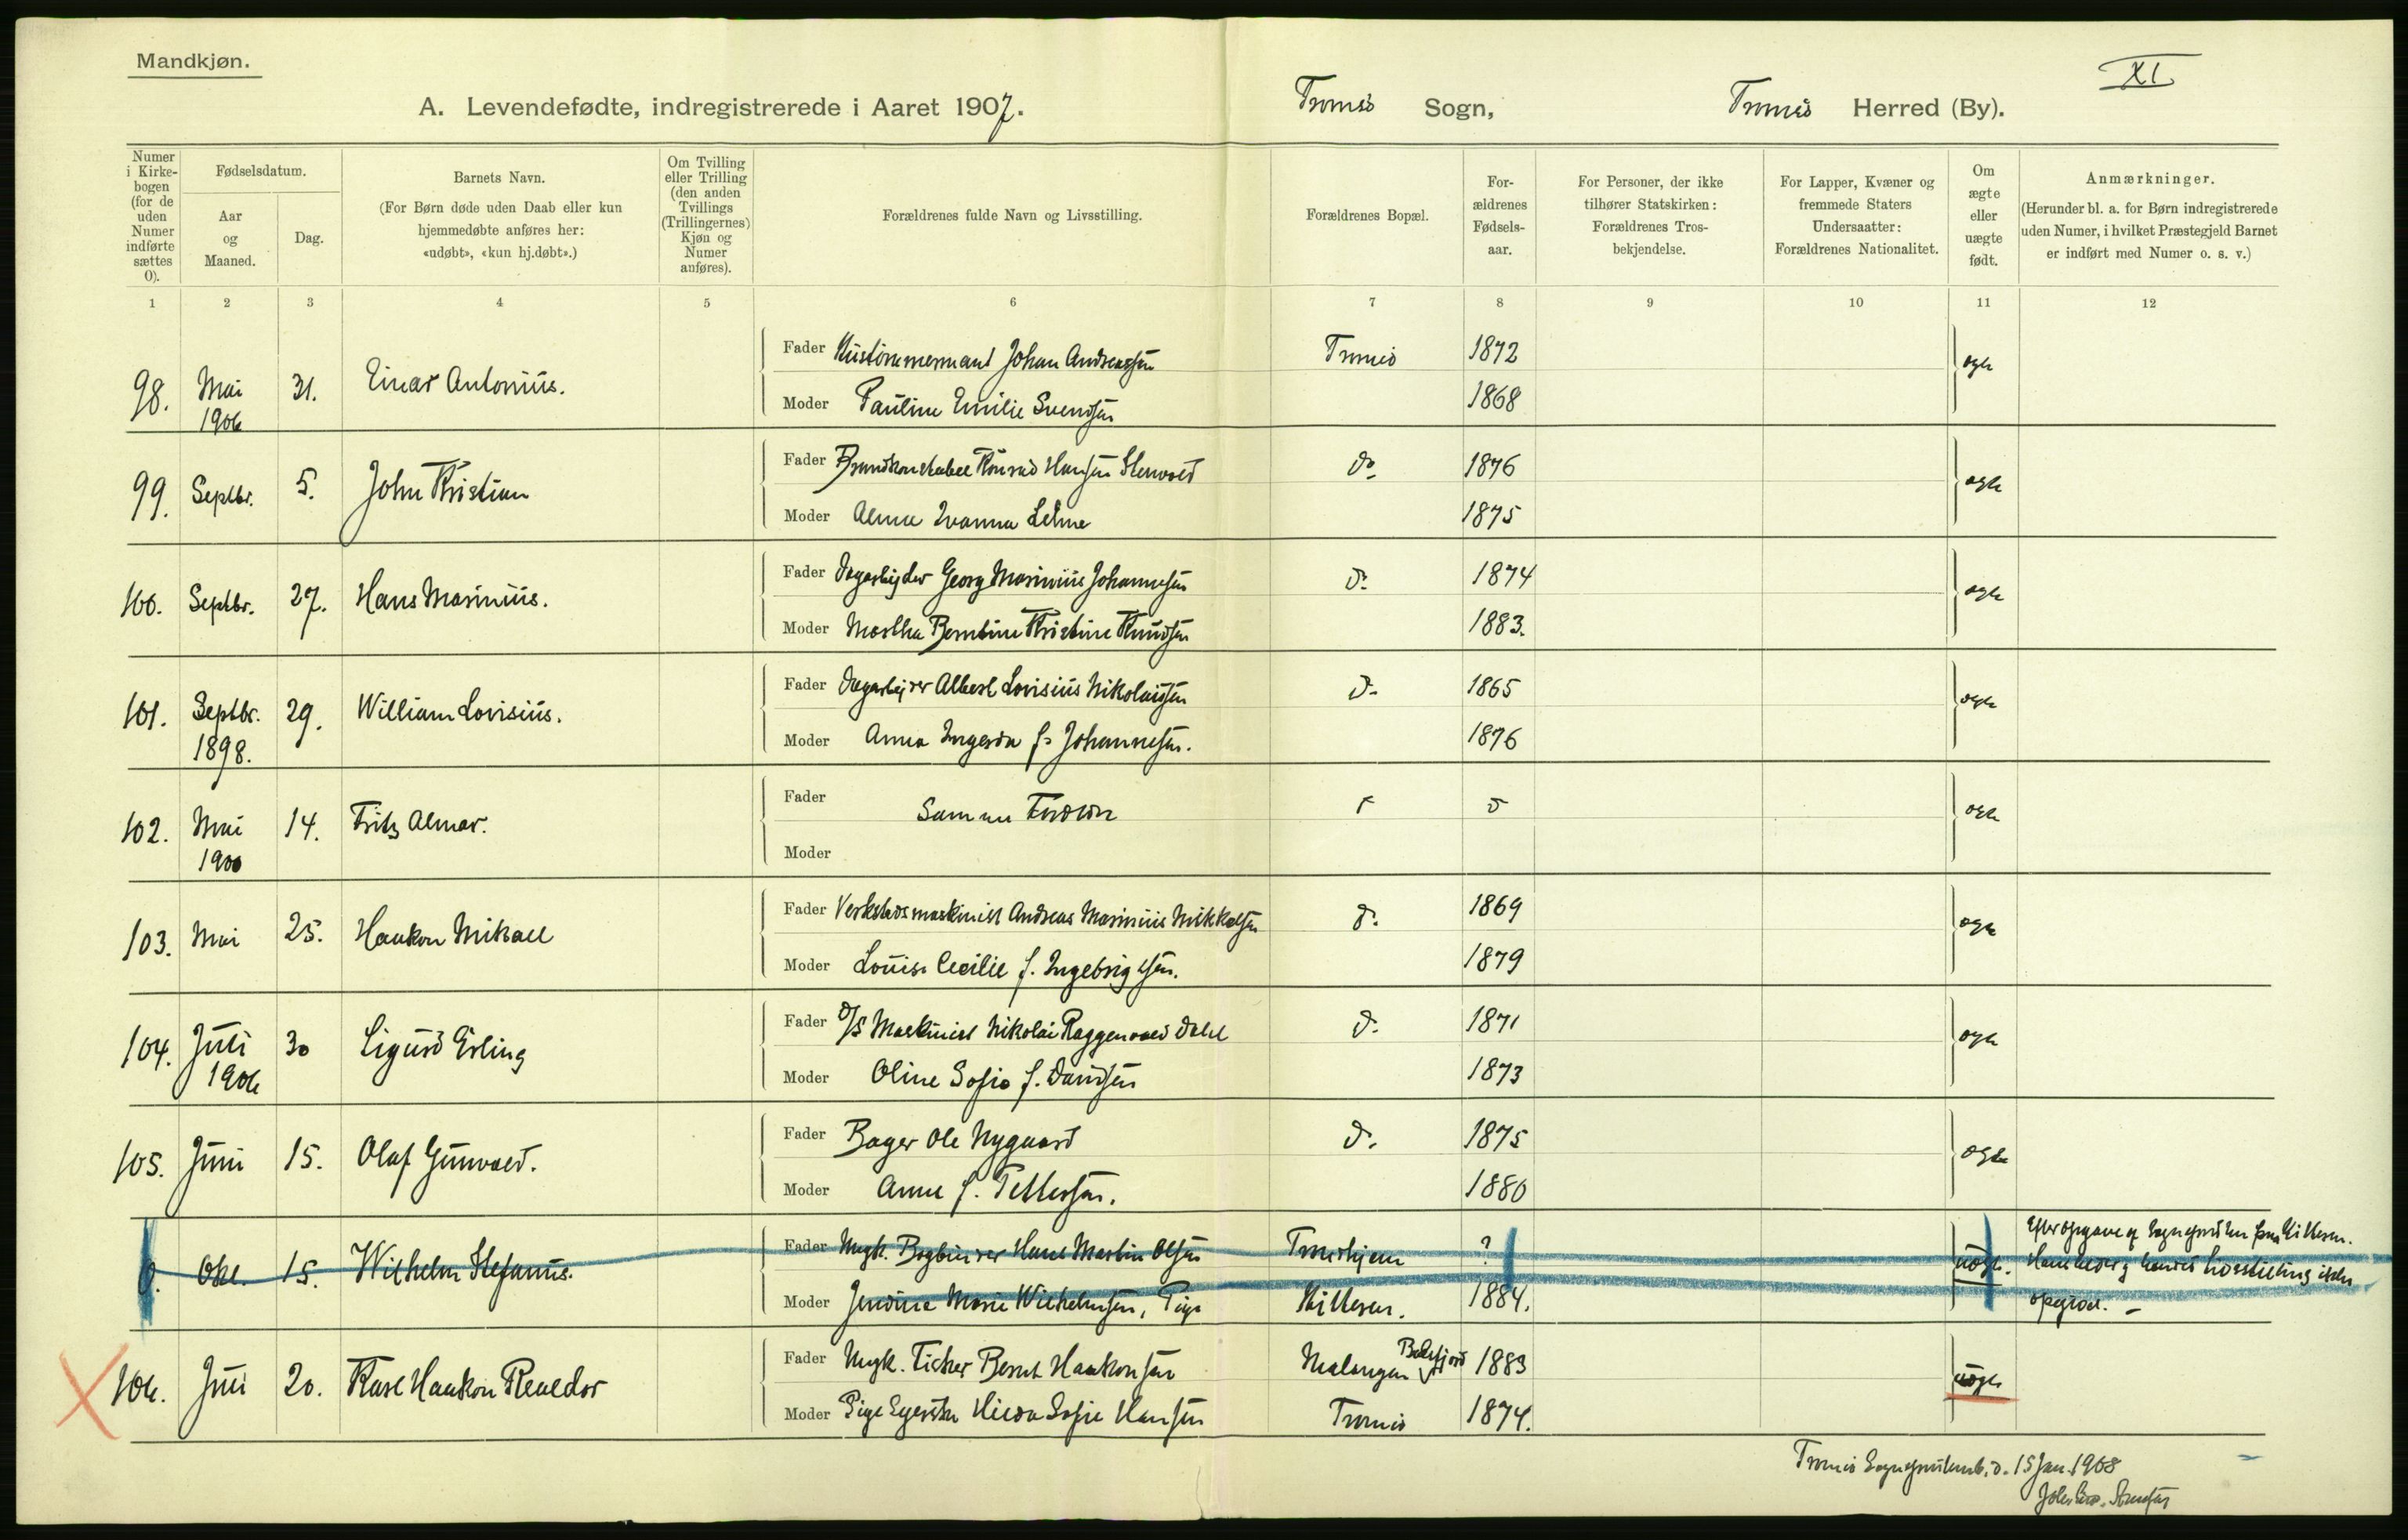 Mandkjøn.
XI
A. Levendefødte, indregistrerede i Aaret 1907.
Tromsø Sogn,
Tromsø Herred (By).
Numer i Kirkebogen (for de uden Numer indførte sættes 0).
Fødselsdatum.
Aar og Maaned.
Dag.
Barnets Navn.
(For Børn døde uden Daab eller kun hjemmedøbte anføres her: «udøbt», «kun hj.døbt».)
Om Tvilling eller Trilling (den anden Tvillings (Trillingernes) Kjøn og Numer anføres).
Forældrenes fulde Navn og Livsstilling.
Forældrenes Bopæl.
Forældrenes Fødselsaar.
For Personer, der ikke tilhører Statskirken: Forældrenes Trosbekjendelse.
For Lapper, Kvæner og fremmede Staters Undersaatter: Forældrenes Nationalitet.
Om ægte eller uægte født.
Anmærkninger.
(Herunder bl. a. for Børn indregistrerede uden Numer, i hvilket Præstegjeld Barnet er indført med Numer o. s. v.)
1 2 3 4 5 6 7 8 9 10 11 12
98. Mai 31. Einar Antonius. Fader Hustømmermand Johan Andreassen Tromsø 1872 ægte
1906 Moder Pauline Emilie Svendsen 1868
99. Septbr. 5. John Kristian Fader Brandkonstabel Konrad Hansen do. 1876 ægte
Moder Alma Ivanna 1875
100. Septbr. 27. Hans Marinius. Fader Dagarbejder Georg Marinius Johannesen d. 1874 ægte
Moder Martha Berntine Kristine Knudsen 1883.
101. Septbr. 29. William Lovisius. Fader Dagarbejder Albert Lovisius Nikolaisen d. 1865 ægte
1898. Moder Anna Ingerda f. Johannesen. 1876
102. Mai 14. Fritz Almar. Fader Samme Fordre ægte
1900 Moder
103. Mai 25. Haakon Mikael Fader Verkstedsmaskinist Andreas Marinius Mikkelsen d. 1869 ægte
Moder Louise Cecilie f. Ingebrigtsen. 1879
104. Juli 30 Sigurd Erling Fader D/S Maskinist Nikolai Raggenvald Dahl d. 1871 ægte
1906 Moder Oline Sofie f. Davidsen 1873
105. Juni 15. Olaf Gunvald. Fader Bager Ole Nygaard d. 1875 ægte
Moder Anne f. Pettersen. 1880
0. Okt. 15. Wilhelm Stefanus. Fader Ungk. Bogbinder Hans Martin Olsen Trondhjem ? uægt.
Moder Jendine Marie Wilhelmsen, Pige Kilteren. 1884.
opgivet. –
106. Juni 20. Karl Haakon Reneldor Fader Ungk. Fisker Bernt Haakonsen Malangen Balsfjord 1883 uægte
Moder Pige Hilda Sofie Hansen Tromsø 1874.
Tromsø Sogneprestemb. d. 15 Jan. 1908